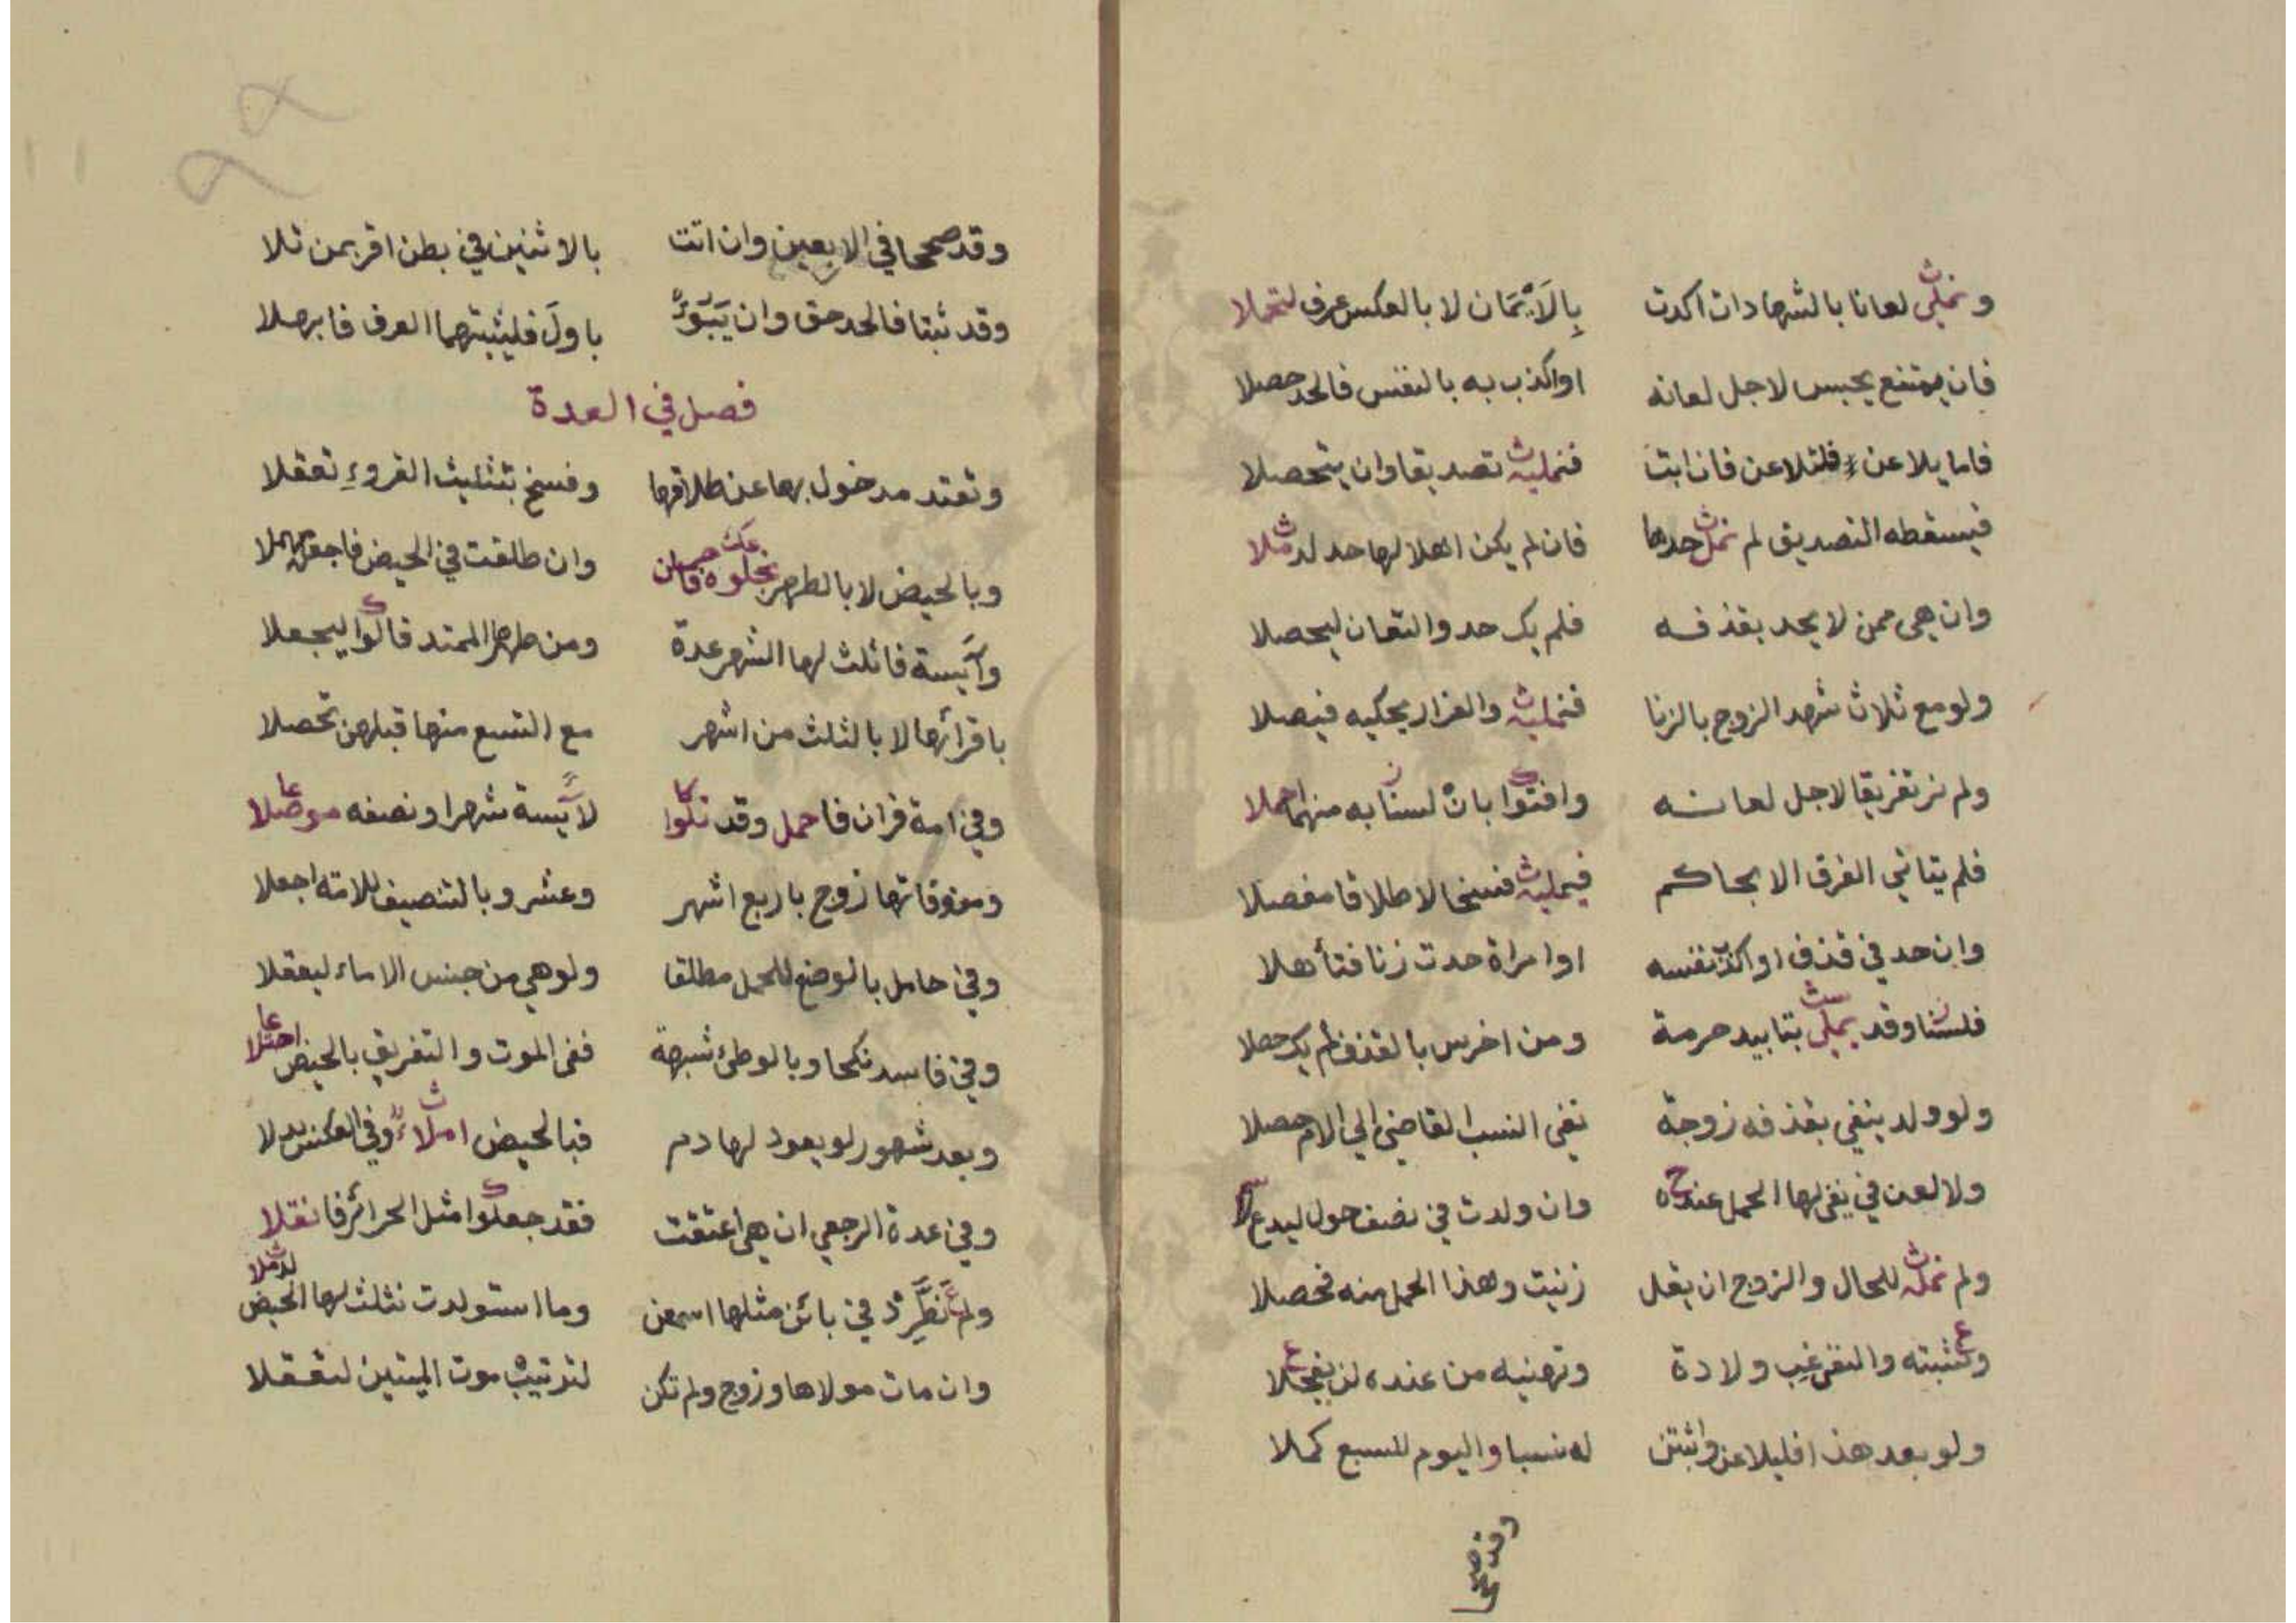 ونملي لعانا بالشهادات اكدت بِالَايْمَان لا بالعكس عرف لتحملا
فان يمتنع يحبس لاجل لعانه اواكذب به بالنفس فالحد حصلا
فاما يلاعن فلتلاعن فان ابت فنمليه تصديقا وان يتحصلا
فيسقطه التصديق لم نمل حدها فان لم يكن اهلا لها حد لد ملا
وان هي ممن لا يحد بقذفه فلم يك حد والتعان ليحصلا
ولو مع ثلاث شهد الزوج بالزنا فنمليه والفزار يحكيه فيصلا
ولم نر تفريقا لاجل لعانه وافتوا بان لسنا به منهما احملا
فلم يتاتي الفرق الا بحاكم فيمليه فسخا لا طلاقا مفصلا
وان حد في قذف او اكذب نفسه او امراة حدت زنا فتأهلا
فلسنا وقد يملي بتابيد حرمة ومن اخرس بالقذف لم يك حصلا
ولو ولد ينفي بقذفه زوجة نفى النسب القاضي الي الام حصلا
ولا لعن في نفي لها الحمل عنده وان ولدت في نصف حول ليدع
ولم نمله للحال والزوج ان يقل زنيت وهذا الحمل منه فحصلا
ونثبته والنفي غب ولادة وتهنيه من عنده لن يفجلا
ولو بعد هذا فليلاعن واثبتن له نسبا واليوم للسبع كملا
وقد صححا
وقد صححا في الاربعين وان اتت بالاثنين في بطن اقر بمن تلا
وقد ثبتا فالحد حق وان يَبَوء باولَ فليثبتهما العرف فابرهلا
فصل في العدة
وتعتد مدخول بها عن طلاقها وفسخ بتثليث القروءِ تعقلا
وبالحيض لا بالطهر بجلوه فان وان طلقت في الحيض فاجعل
وآيسة فاثلث لها الشهر عدة ومن طهرها الممتد قالوا ليجعلا
باقرائها لا بالثلث من اشهر مع التسع منها قبلهن تحصلا
وفي امة قران فاحمل وقد تلوا لآيسة شهرا ونصفه موصلا
ومتوفاتها زوج باربع اشهر وعشر وبالتنصيف للامته اجعلا
وفي حامل بالوضع للحمل مطلقا ولو هي من جنس الاماء ليعقلا
وفي فاسد نكحا وبالوطئ شبهة ففى الموت والتفريق بالحيض اجتلا
وبعد شهور لو يعود لها دم فبالحيض املاء وفي العكس بدلا
وفي عدة الرجعي ان هي اعتقت فقد جعلوا مثل الحرائر فانقلا
ولم نَطَّرِدْ في بائن مثلها اسمعن وما استولدت نثلث لها الحيض لد ملا
وان مات مولاها وزوج ولم تكن لترتيب موت الميتين لتعقلا